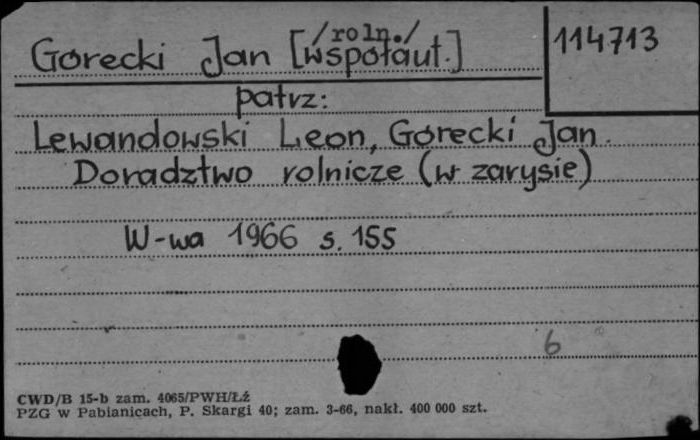 /roln./
Górecki Jan [współaut.]
114713
patrz:
Lewandowski Leon, Górecki Jan.
Doradztwo rolnicze (w zarysie)
W-wa 1966 s. 155
6
CWD/B 15-b zam. 4065/PWH/Łź
PZG w Pabianicach, P. Skargi 40; zam. 3-66, nakł. 400 000 szt.